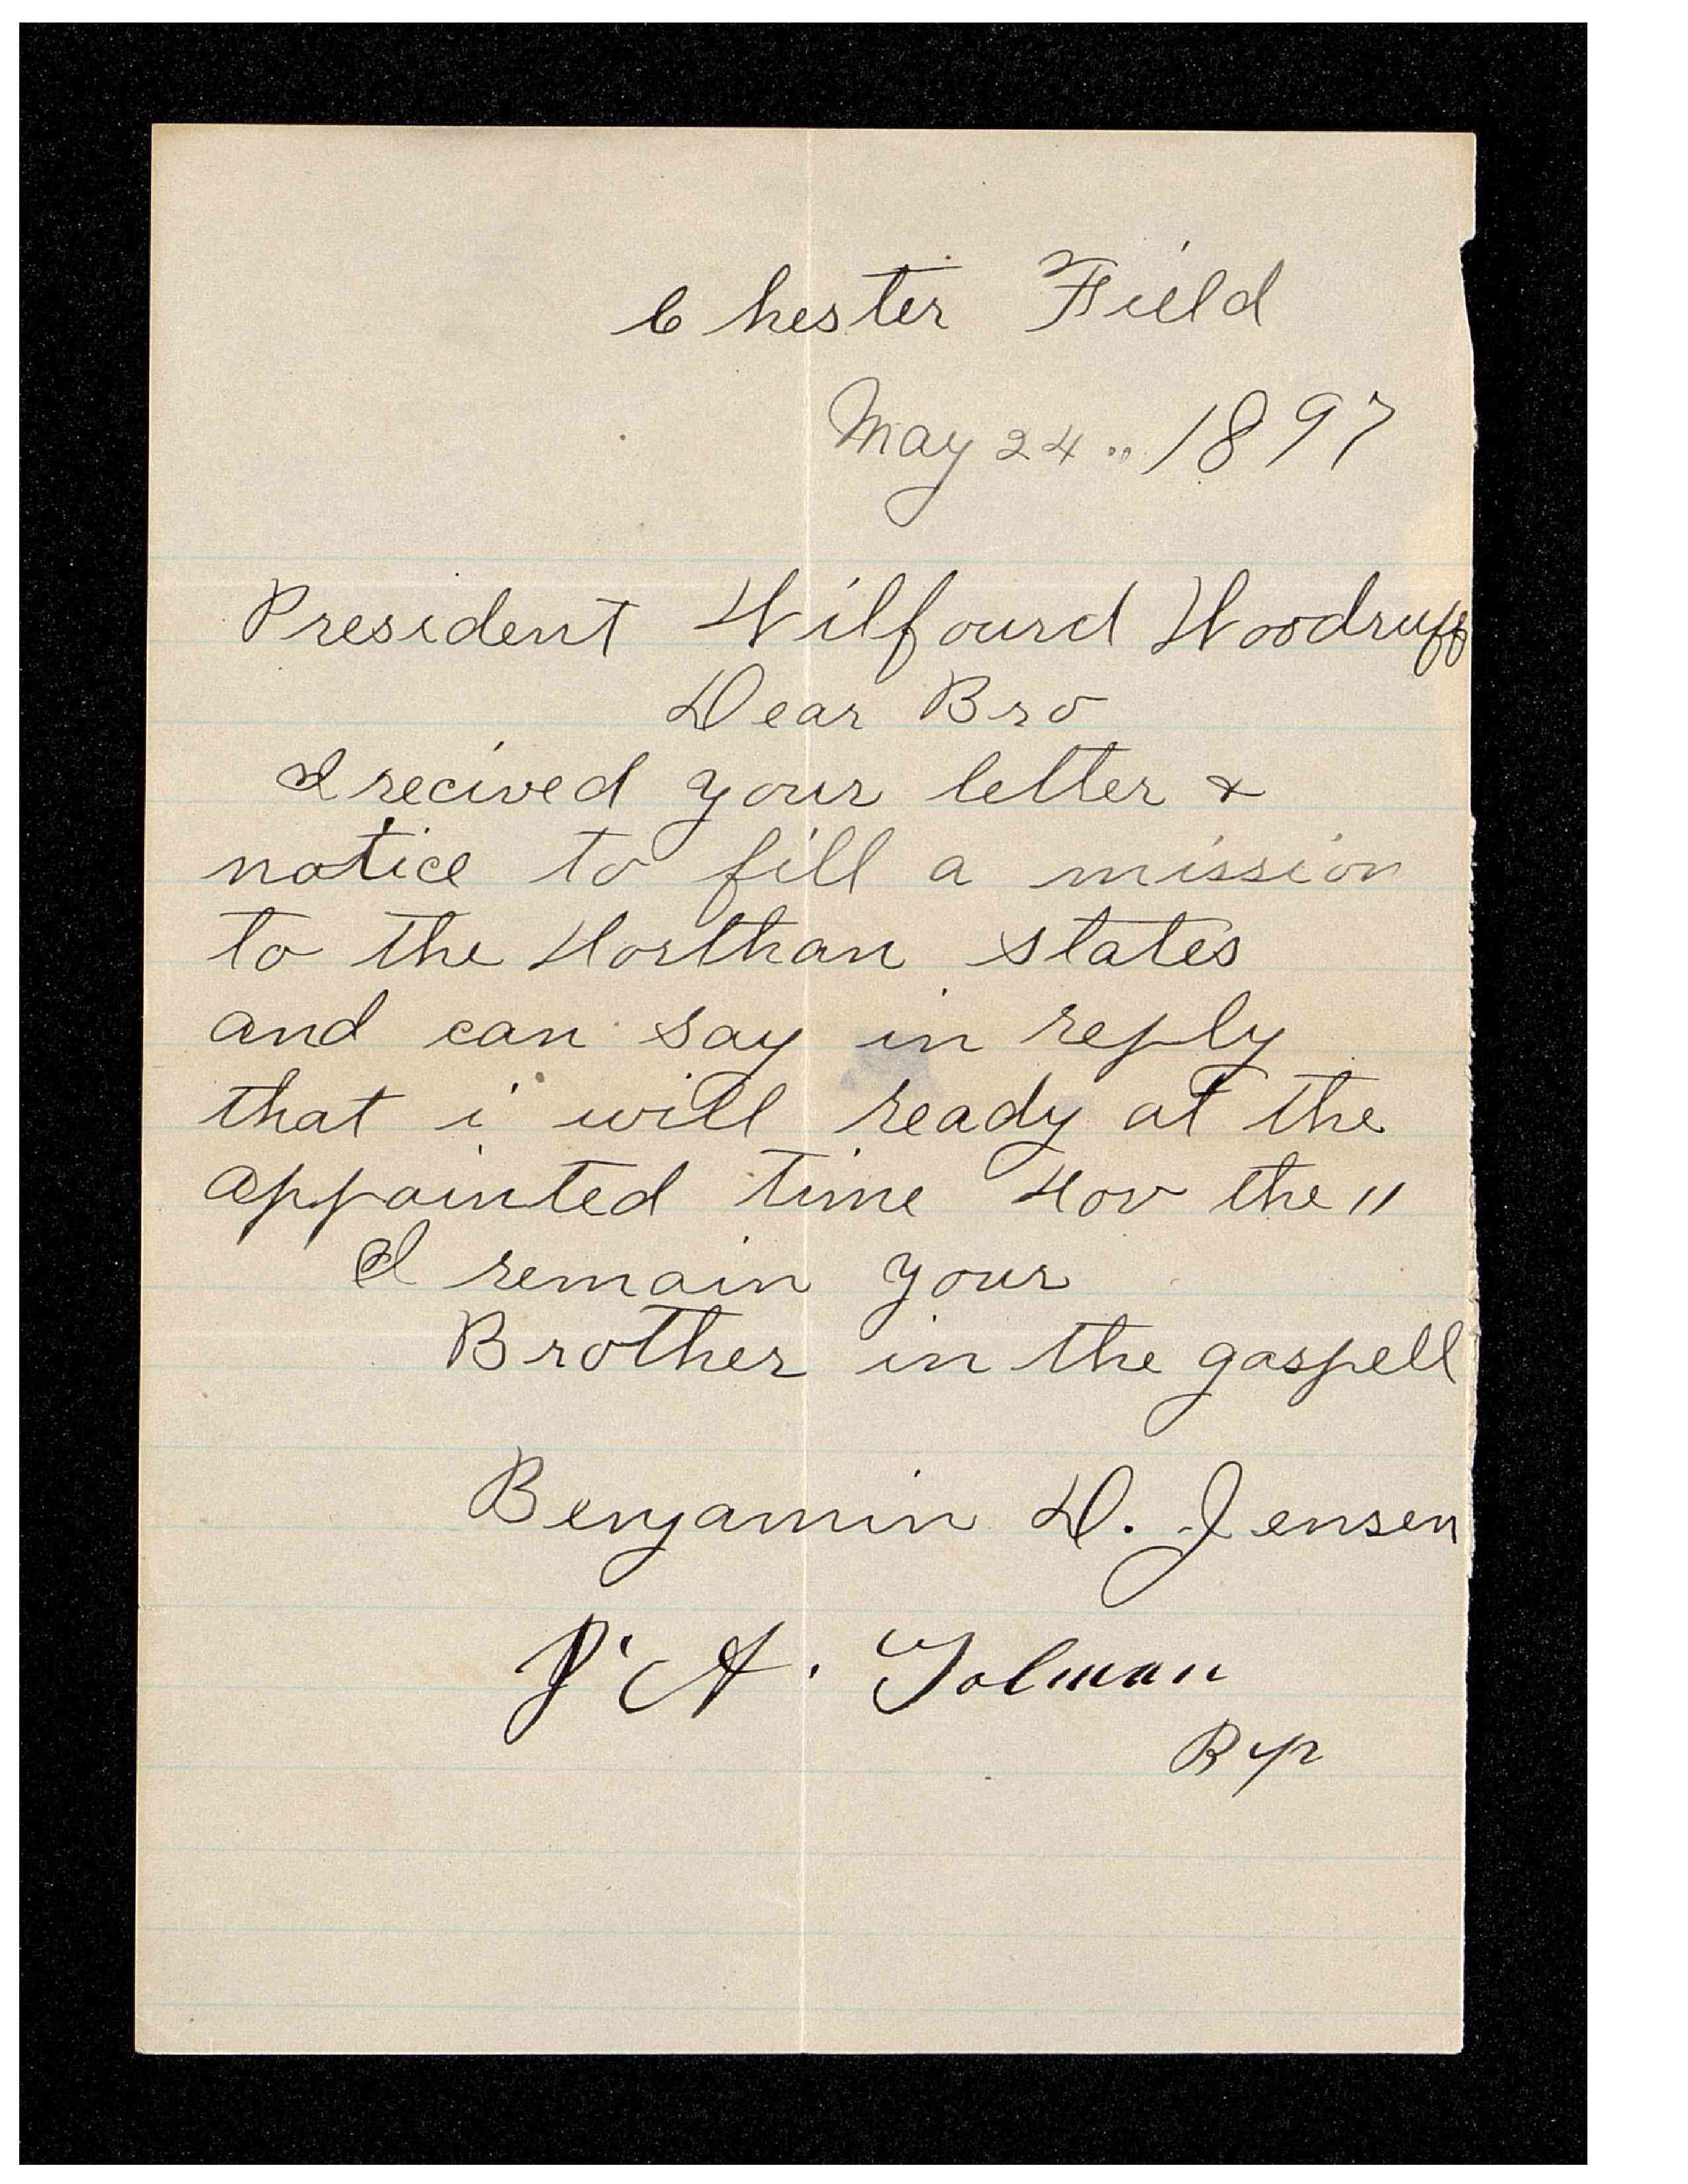 Chester Field
May 24" 1897
President Wilfourd Woodruff
Dear Bro
I recived your letter &
notice to fill a mission
to the Northan states
and can say in reply
that i will ready at the
appointed time Nov the 11
I remain your
Brother in the gospell
Benjamin D. Jensen
J. A. Tolman
Bp